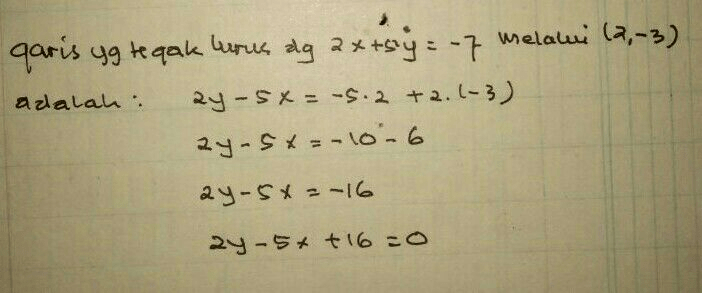 garis yg tegak lurus dg 2x+5y = -7 melalui (2,-3)
adalah : 2y - 5x = -5.2 + 2.(-3)
2y - 5x = -10 - 6
2y - 5x = -16
2y - 5x + 16 = 0